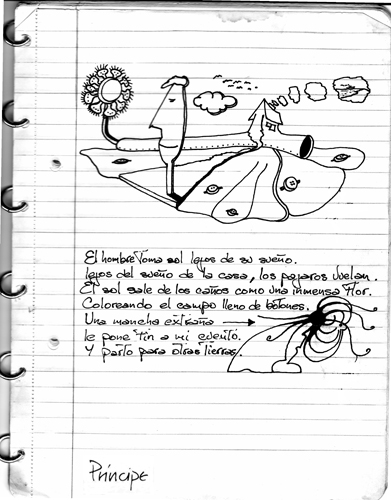 El hombre toma sol lejos de su sueño.
lejos del sueño de la casa, los pajaros vuelan.
El sol sale de los caños como una inmensa flor.
Coloreando el campo lleno de botones.
Una mancha extraña
le pone fin a mi cuento.
Y parto para otras tierras.
Príncipe